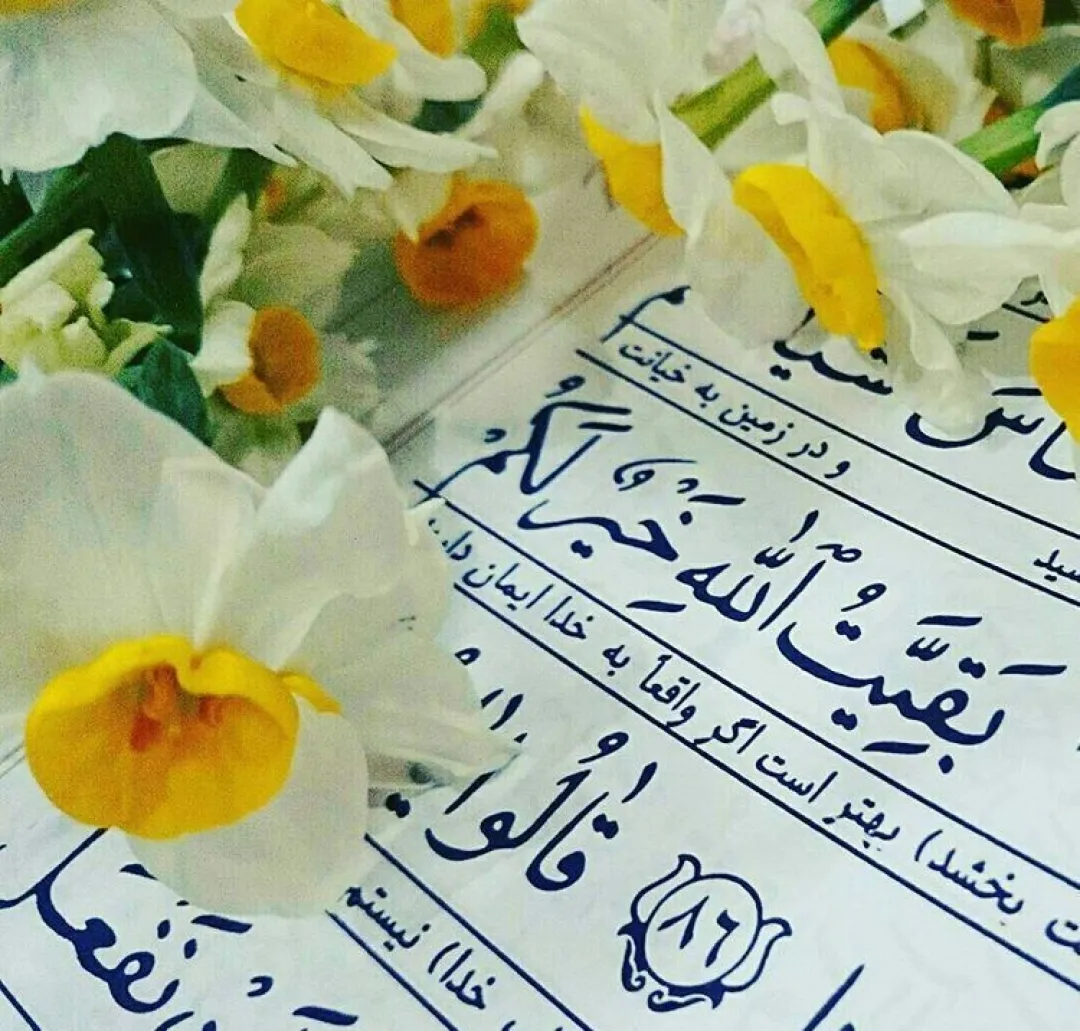 و در زمین به خیانت
بَقِيَّتُ اللهِ خَيْرٌ لَكُمْ
بخشد) بهتر است اگر واقعاً به خدا ایمان
٨٦ قالُوا
خدا) نیستم
نَفْعَلَ